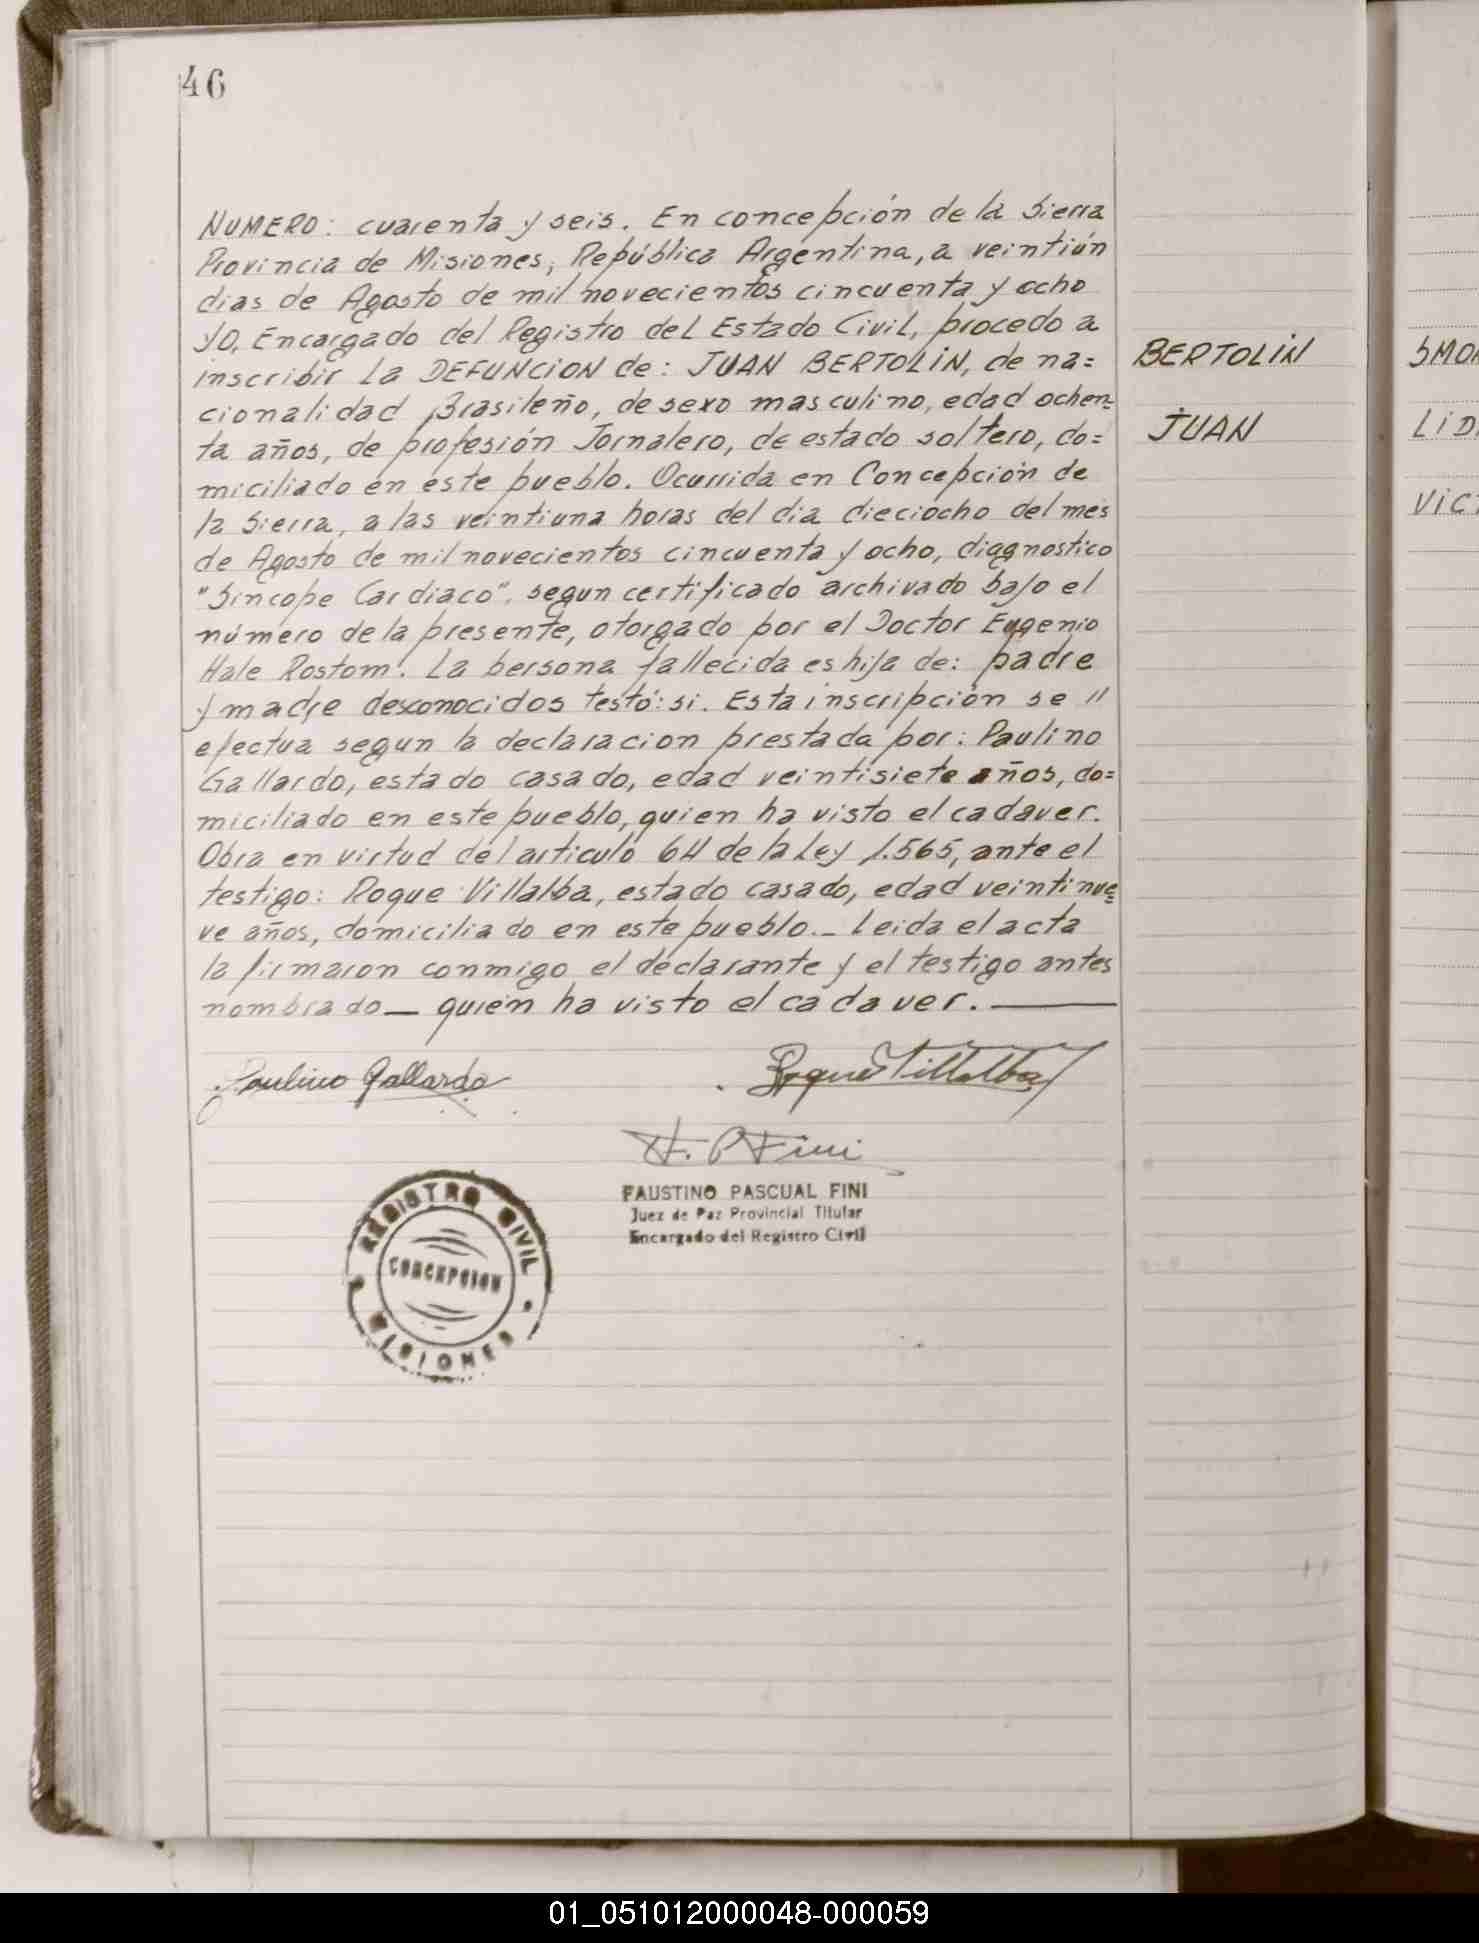 46
NUMERO: cuarenta y seis. En concepción de la Sierra
Provincia de Misiones, República Argentina, a veintiún
dias de Agosto de mil novecientos cincuenta y ocho
yo, Encargado del Registro del Estado Civil, procedo a
inscribir la DEFUNCION de: JUAN BERTOLIN, de na=
cionalidad Brasileño, de sexo masculino, edad ochen=
ta años, de profesión Jornalero, de estado soltero, do=
miciliado en este pueblo. Ocurrida en Concepción de
la Sierra, a las veintiuna horas del dia dieciocho del mes
de Agosto de mil novecientos cincuenta y ocho, diagnostico
"Sincope Cardiaco", segun certificado archivado bajo el
número de la presente, otorgado por el Doctor Eugenio
Hale Rostom. La persona fallecida es hija de: padre
y madre desconocidos testó: si. Esta inscripción se "
efectua segun la declaracion prestada por: Paulino
Gallardo, estado casado, edad veintisiete años, do=
miciliado en este pueblo, quien ha visto el cadaver.
Obra en virtud del articulo 64 de la Ley 1.565, ante el
testigo: Roque Villalba, estado casado, edad veintinue=
ve años, domiciliado en este pueblo._ Leida el acta
la firmaron conmigo el declarante y el testigo antes
nombrado_ quien ha visto el cadaver.
BERTOLIN
JUAN
Paulino Gallardo
Roque Villalba
F. P Fini
FAUSTINO PASCUAL FINI
Juez de Paz Provincial Titular
Encargado del Registro Civil
REGISTRO CIVIL
CONCEPCION
MISIONES
SMO
LID
VICT
01_051012000048-000059